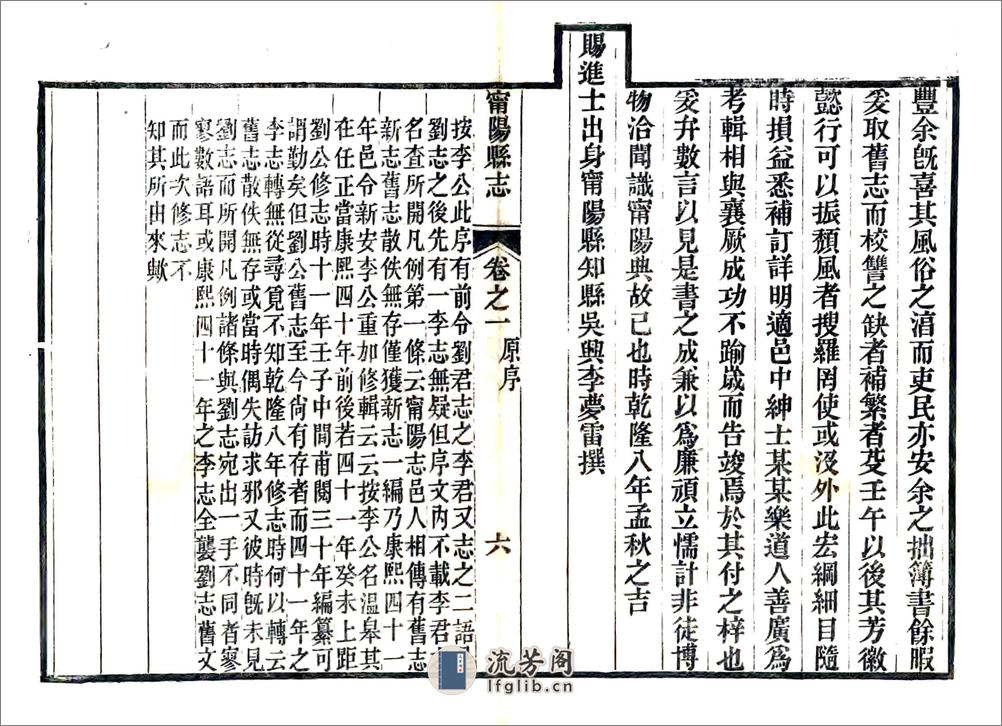 豐余旣喜其風俗之湻而吏民亦安余之拙簿書餘暇
爰取舊志而校讐之缺者補繁者芟壬午以後其芳徽
懿行可以振頹風者搜羅罔使或沒外此宏綱細目隨
時損益悉補訂詳明適邑中紳士某某樂道人善廣爲
考輯相與襄厥成功不踰歲而告竣焉於其付之梓也
爰弁數言以見是書之成兼以爲廉頑立懦計非徒博
物洽聞識甯陽典故已也時乾隆八年孟秋之吉
賜進士出身甯陽縣知縣吳興李夢雷撰
甯陽縣志 卷之一 原序 六
按李公此序有前令劉君志之李君又志之二語
劉志之後先有一李志無疑但序文內不載李君
名查所開凡例第一條云甯陽志邑人相傳有舊志
新志舊志散佚無存僅獲新志一編乃康熙四十一
年邑令新安李公重加修輯云云按李公名溫皋其
在任正當康熙四十年前後若四十一年癸未上距
劉公修志時十一年壬子中間甫閱三十年編纂可
謂勤矣但劉公舊志至今尚有存者而四十一年之
李志轉無從尋覓不知乾隆八年修志時何以轉云
舊志散佚無存或當時偶失訪求邪又彼時旣未見
劉志而所開凡例諸條與劉志宛出一手不同者寥
寥數語耳或康熙四十一年之李志全襲劉志舊文
而此次修志不
知其所由來歟
流芳阁
lfglib.cn